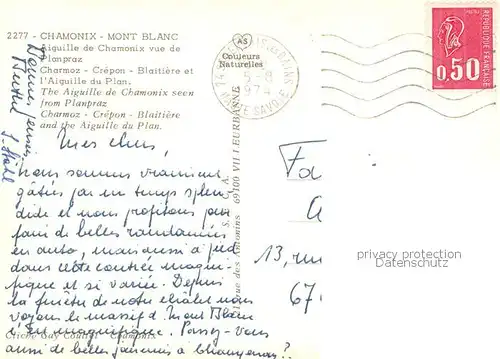 2277 - CHAMONIX - MONT BLANC
Aiguille de Chamonix vue de
Planpraz
Charmoz - Crépon - Blaitière et
l'Aiguille du Plan.
The Aiguille de Chamonix seen
from Planpraz
Charmoz - Crépon - Blaitière
and the Aiguille du Plan.
AS
Couleurs
Naturelles
1974
HTE SAVOIE
POSTES
RÉPUBLIQUE FRANÇAISE
0,50
Mes chers,
Nous sommes vraiment
gâtés par un temps splen
dide et nous profitons pour
faire de belles randonnées
en auto, mais aussi à pied
dans cette contrée magni-
fique et si variée. Depuis
la fenêtre de notre chalet nous
voyons le massif du Mont Blanc
c'est magnifique. Passez-vous
aussi de belles journées à
Bonnes pensées
S. Stahl
69100 VILLEURBANNE
Cliché Gay Couttet - Chamonix
Fa
13, rue
67
privacy protection
Datenschutz